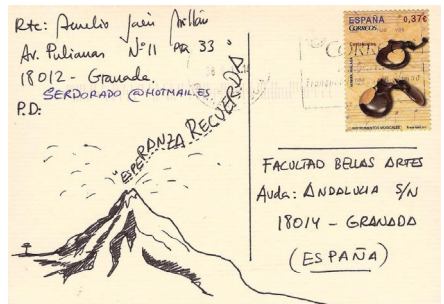 Rte: Aurelio Jaén Millán
Av. Pulianas Nº11 33
18012 - Granada.
SERDORADO@HOTMAIL.ES
P.D:
ESPERANZA RECUERDA
ESPAÑA 0,37€
CORREOS
INSTRUMENTOS MUSICALES
FACULTAD BELLAS ARTES
Avda: ANDALUCIA S/N
18014 - GRANADA
(ESPAÑA)